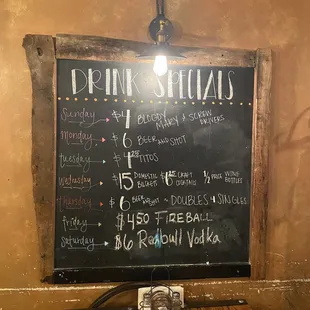 DRINK SPECIALS
Sunday $4 BLOODY MARY & SCREW DRIVERS
Monday $6 BEER AND SHOT
Tuesday $4 TITOS
Wednesday $15 DOMESTIC BUCKETS $6 CRAFT COCKTAILS 1/2 PRICE WINE BOTTLES
Thursday $6 BEER AND SHOT ~ DOUBLES 4 SINGLES
Friday $4.50 FIREBALL
Saturday $6 Redbull Vodka